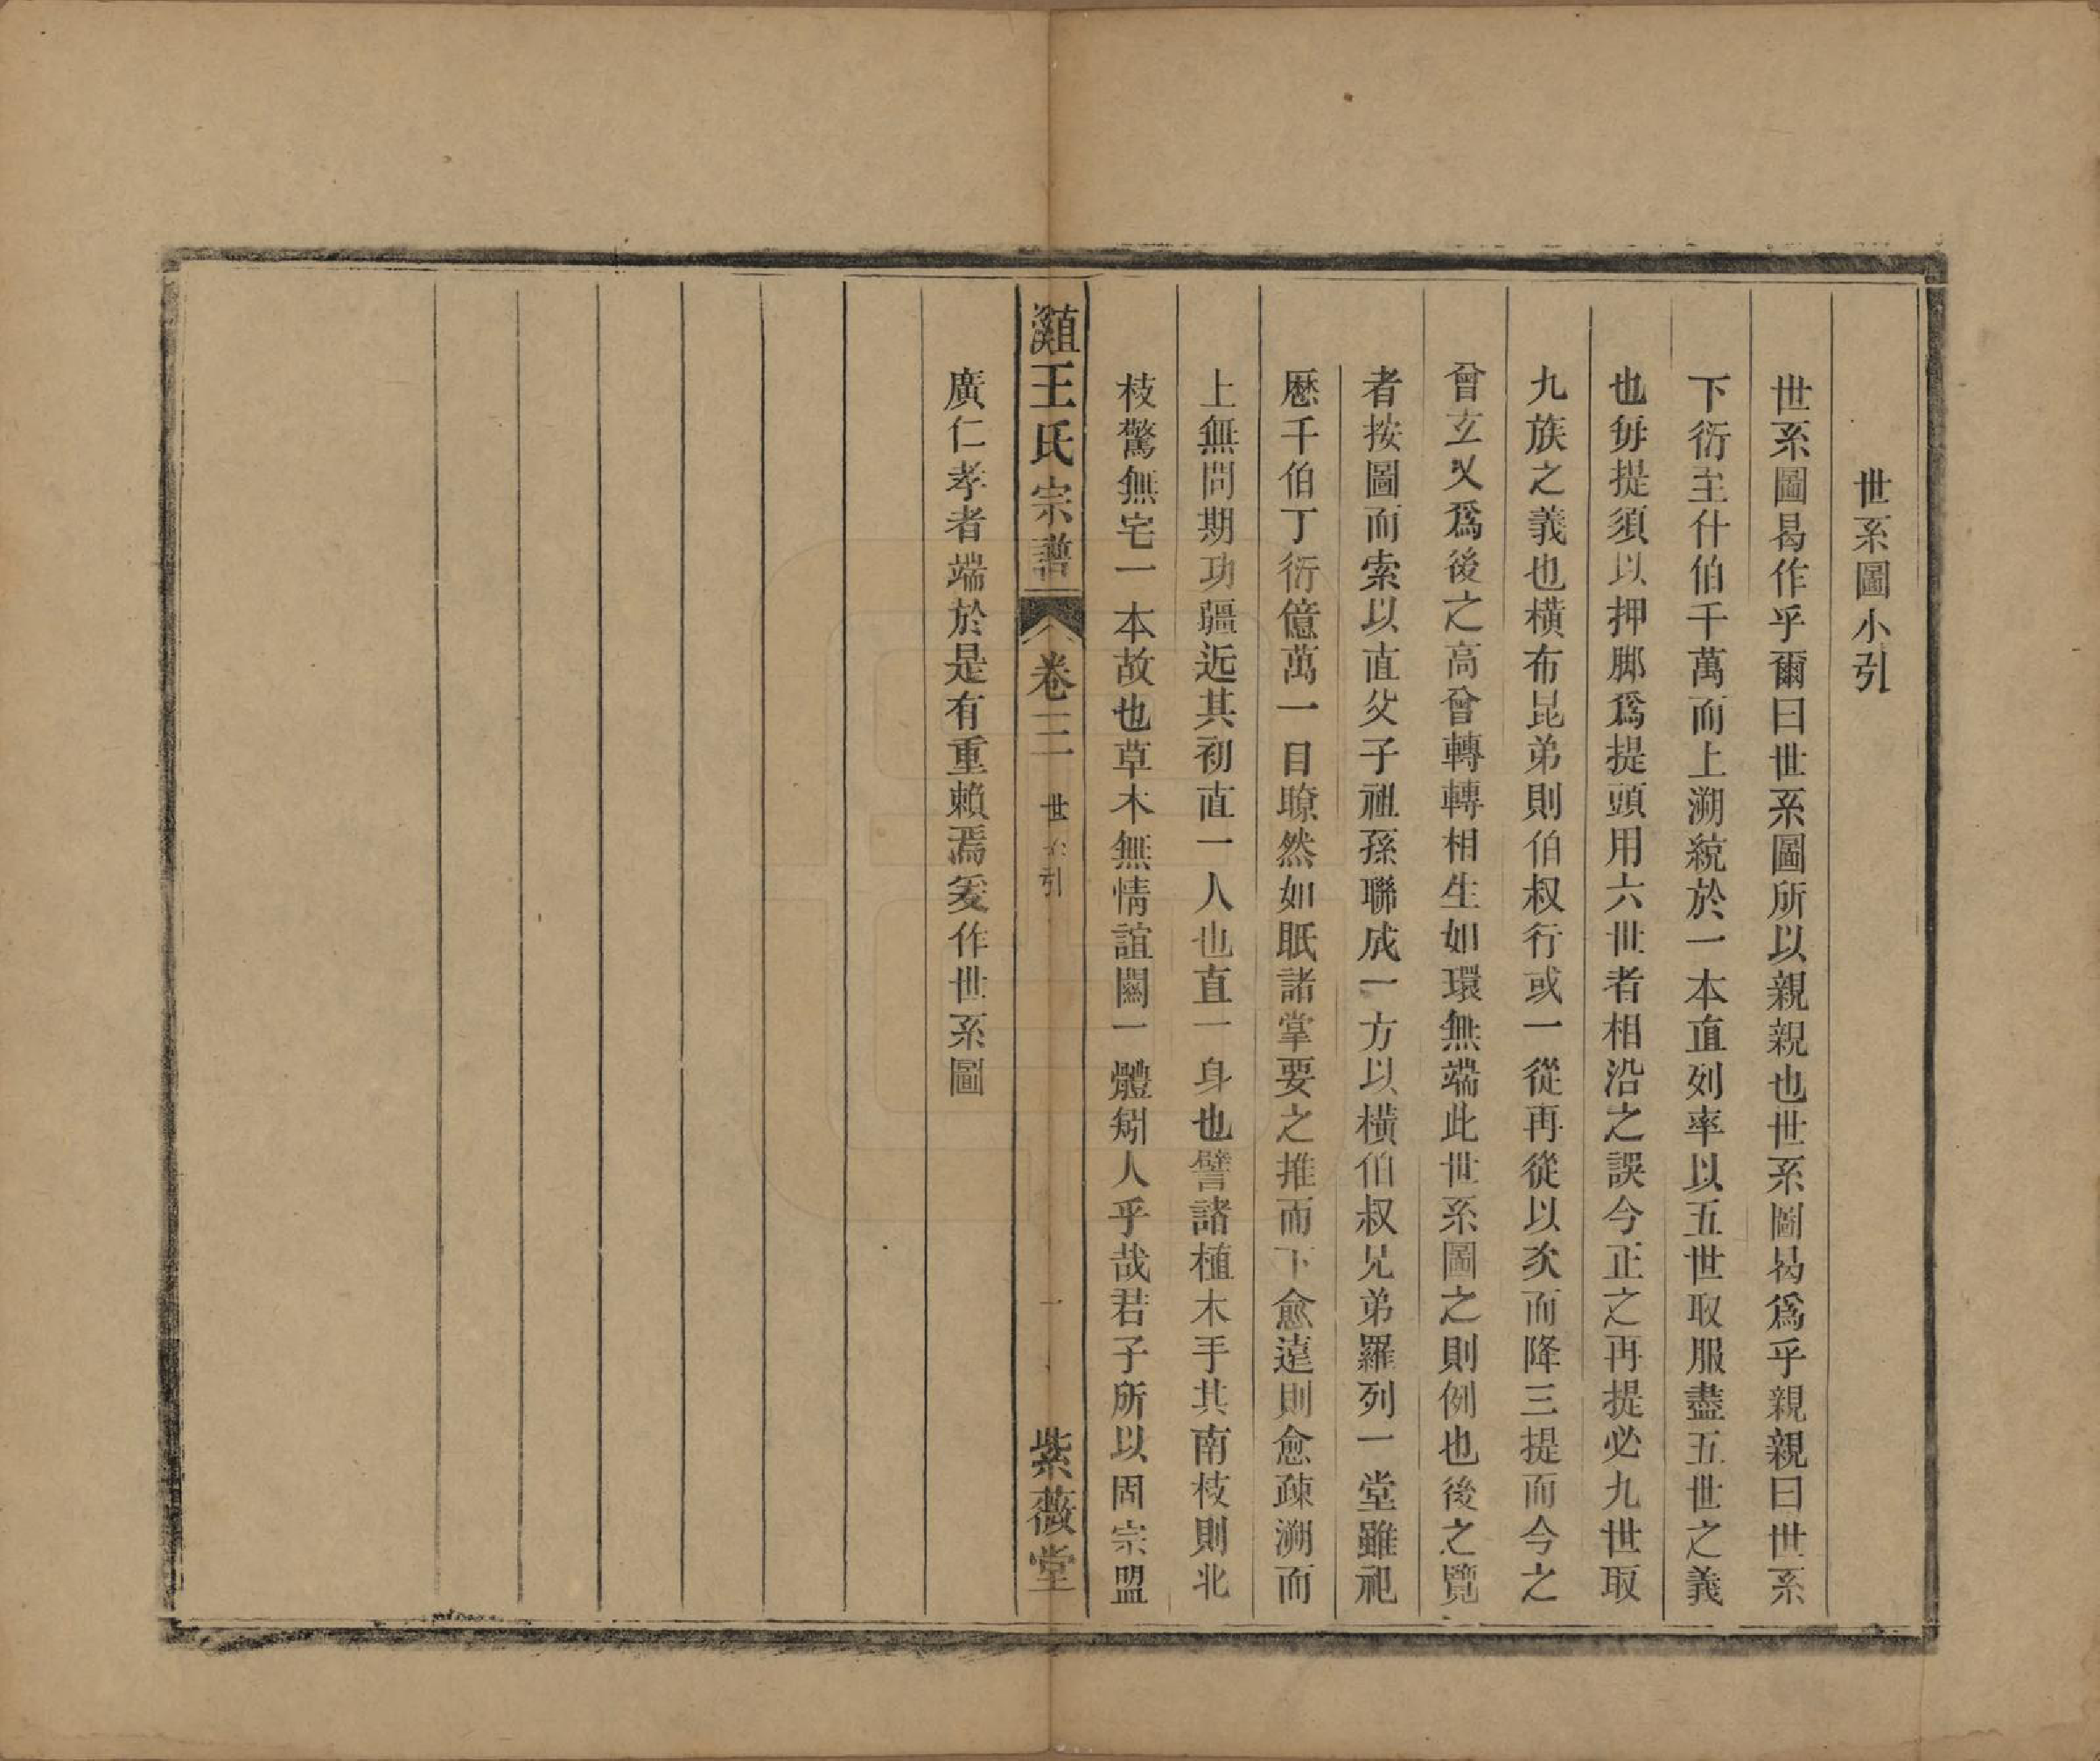 世系圖小引
世系圖曷作乎爾曰世系圖所以親親也世系圖曷爲乎親親曰世系
下衍至什伯千萬而上溯統於一本直列率以五世取服盡五世之義
也毎提須以押脚爲提頭用六世者相沿之誤今正之再提必九世取
九族之義也橫布昆弟則伯叔行或一從再從以次而降三提而今之
曾玄又爲後之高曾轉轉相生如環無端此世系圖之則例也後之覽
者按圖而索以直父子祖孫聯成一方以橫伯叔兄弟羅列一堂雖祀
歷千伯丁衍億萬一目暸然如眂諸掌要之推而下愈遠則愈疎溯而
上無問期功疆近其初直一人也直一身也譬諸植木手其南枝則北
枝驚無宅一本故也草木無情誼關一體矧人乎哉君子所以固宗盟
王氏宗譜 卷三 世系引 一 紫薇堂
廣仁孝者端於是有重賴焉爰作世系圖